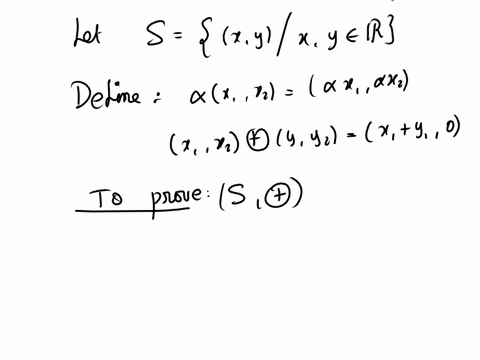 Let S = { (x, y) / x, y ∈ ℝ }
Define : α(x₁, x₂) = (αx₁, αx₂)
(x₁, x₂) ⊕ (y, y₂) = (x₁ + y₁, 0)
To prove: (S, ⊕)